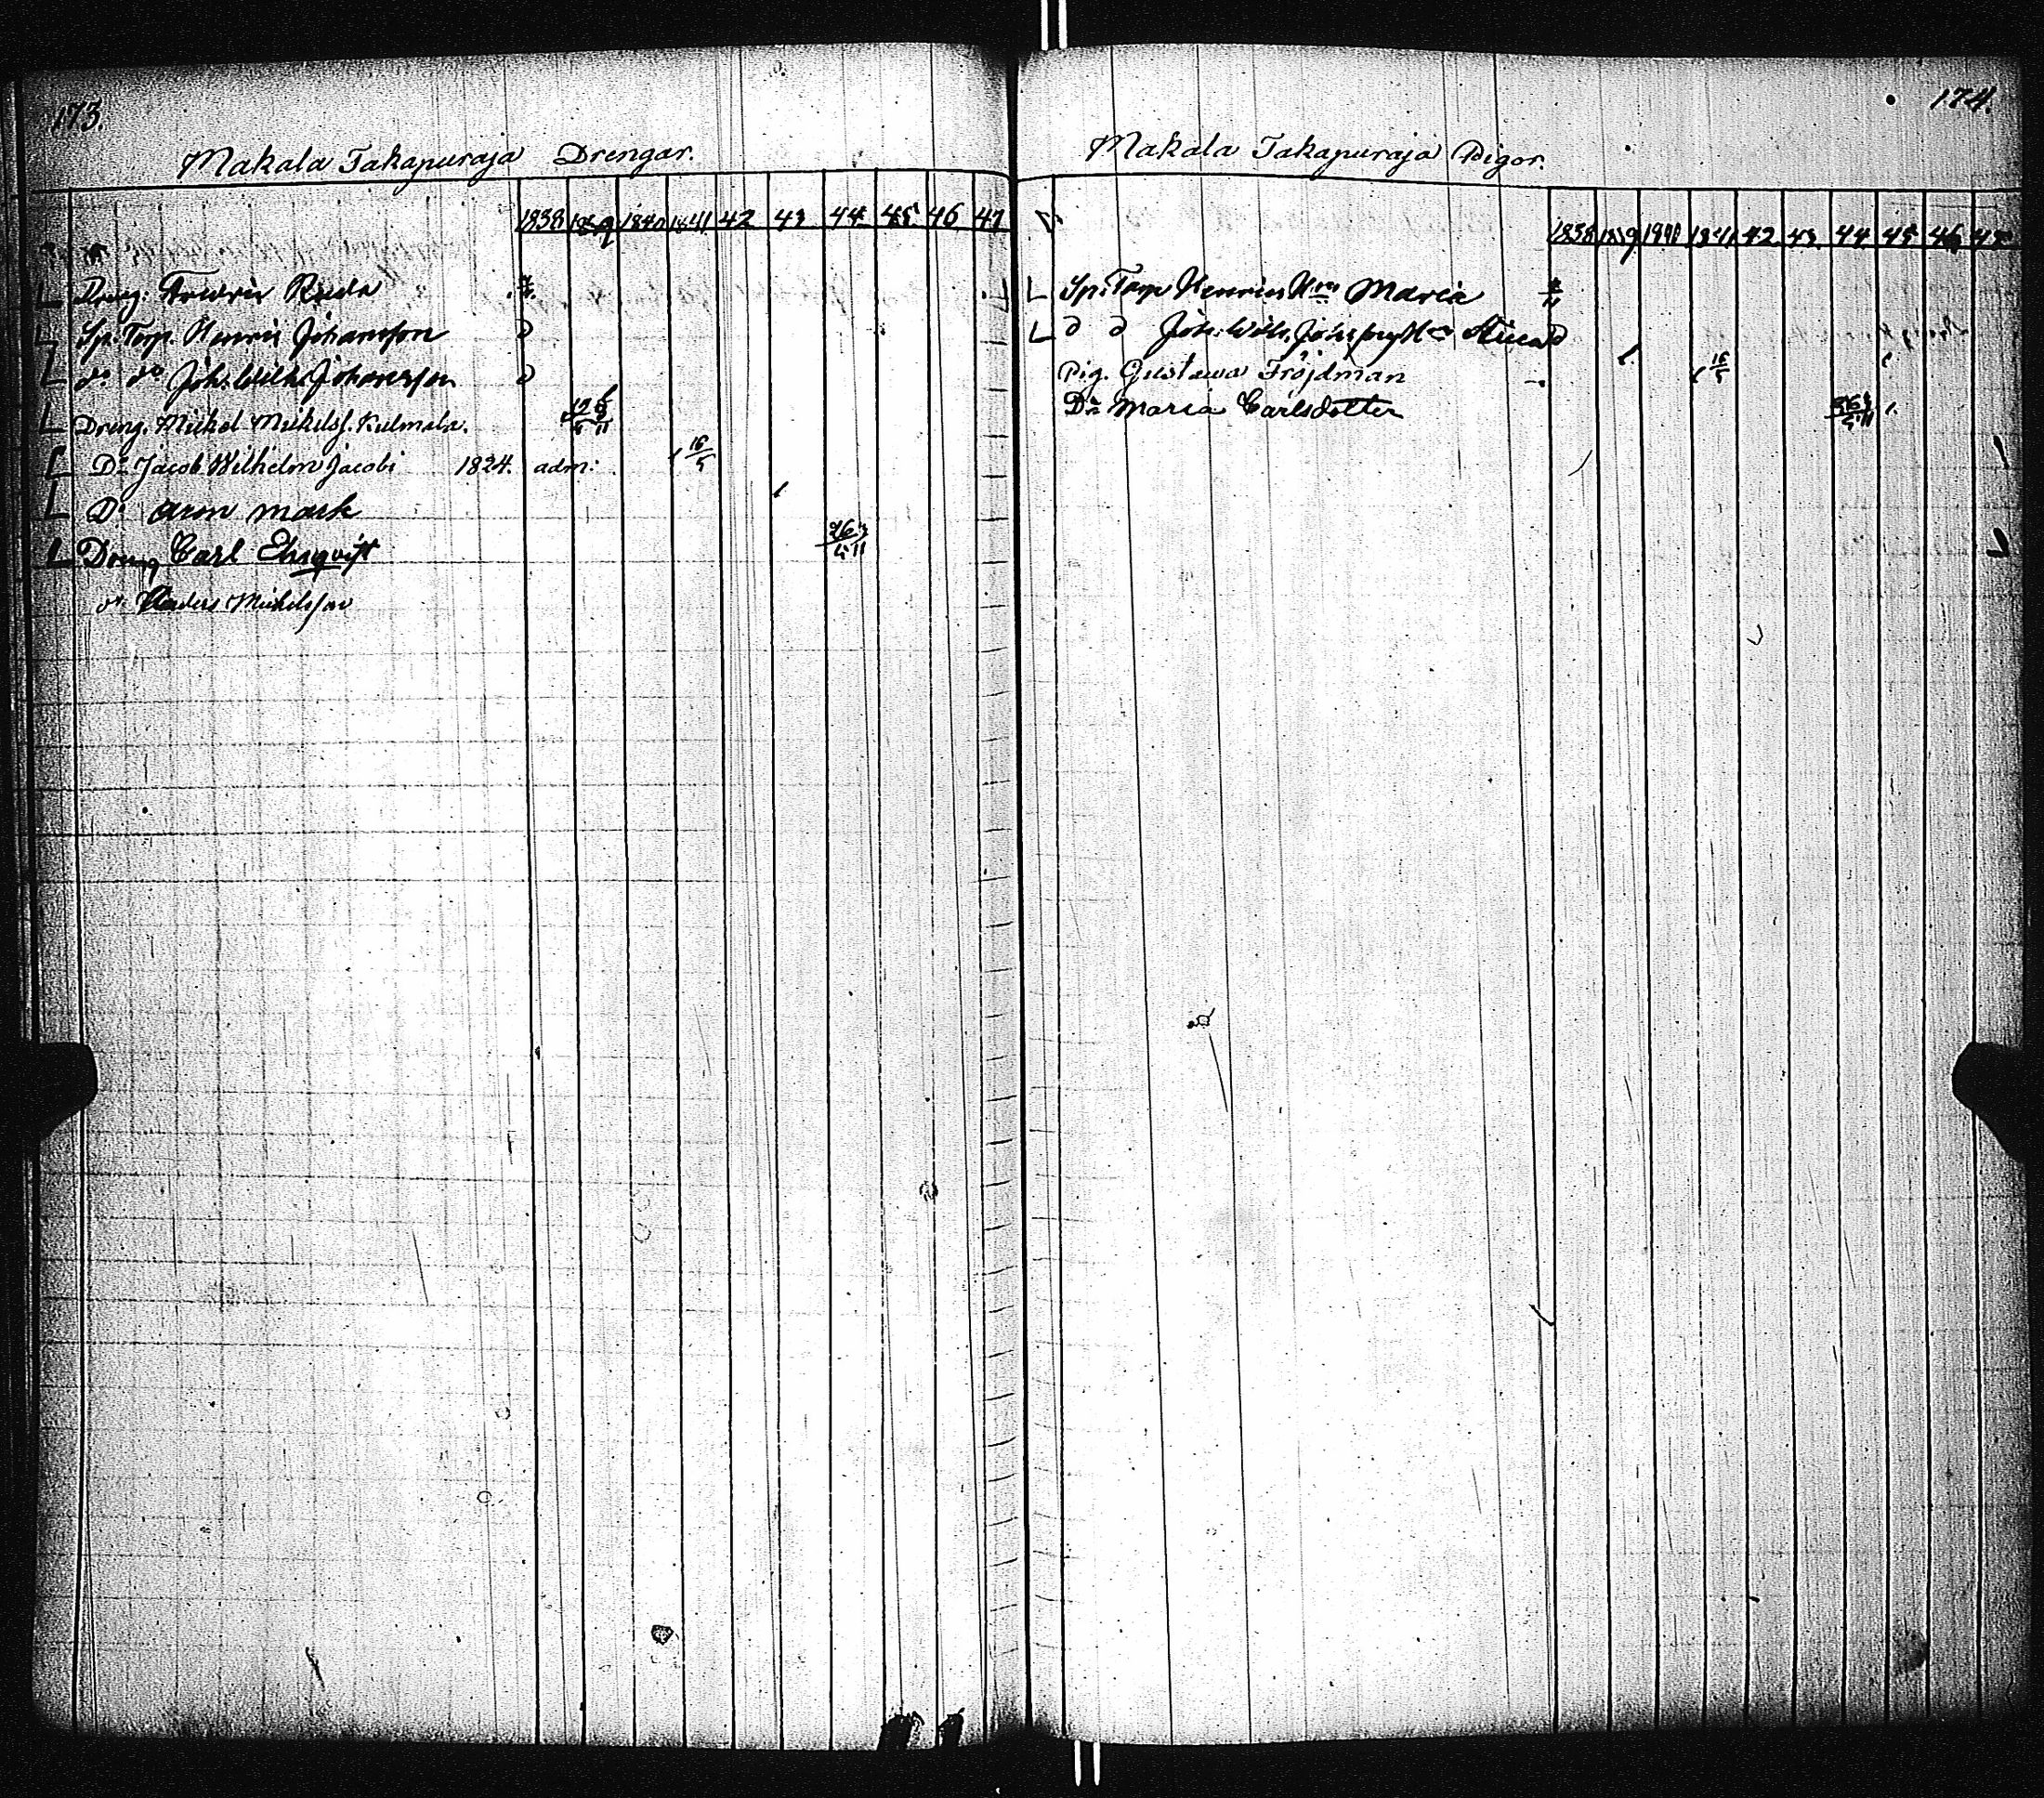 173.
Makala Takapuraja Drengar.
1838 1839 1840 1841 42 43 44 45 46 47
Dreng. Fredric
Sp. Torp. Henric Johansson
do do Joh: Wilh. Johansson
Dreng. Mickel Mickelss. Kulmala.
Do Jacob Wilhelm Jacobi 1824. adm: 16/5
Do Aron Mask
Dreng Carl
do Anders Mickelsson
174.
Makala Takapuraja Pigor.
1838 1839 1840 1841 42 43 44 45 46 47
Sp. Torp Henrics Hru Maria
Joh: Wilh. Stina
Pig. Gustawa Fröjdman 16/5
Do Maria Carlsdotter